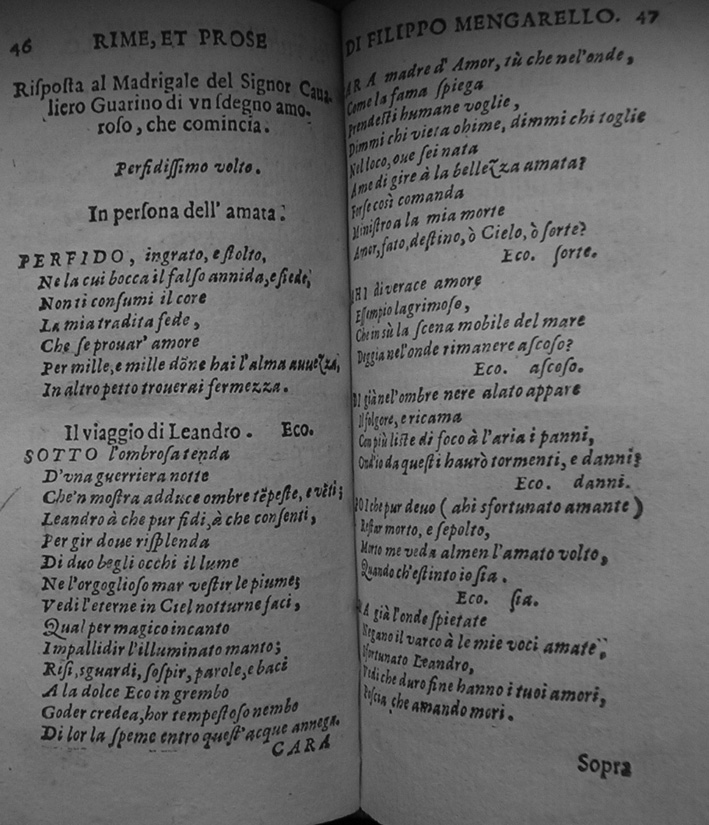 46 RIME, ET PROSE
Riſpoſta al Madrigale del Signor Caua-
liero Guarino di vn ſdegno amo-
roſo, che comincia.
Perfidiſſimo volto.
In perſona dell' amata.
PERFIDO, ingrato, e ſtolto,
Ne la cui bocca il falſo annida, e ſiede,
Non ti conſumi il core
La mia tradita fede,
Che ſe prouar' amore
Per mille, e mille dõne hai l'alma auuezza,
In altro petto trouerai fermezza.
Il viaggio di Leandro. Eco.
SOTTO l'ombroſa tenda
D'vna guerriera notte
Che'n moſtra adduce ombre tẽpeſte, e vẽti;
Leandro à che pur fidi, à che conſenti,
Per gir doue riſplenda
Di duo begli occhi il lume
Ne l'orgoglioſo mar veſtir le piume;
Vedi l'eterne in Ciel notturne faci,
Qual per magico incanto
Impallidir l'illuminato manto;
Riſi, sguardi, ſoſpir, parole, e baci
A la dolce Eco in grembo
Goder credea, hor tempeſtoſo nembo
Di lor la ſpeme entro queſt'acque annega.
CARA
DI FILIPPO MENGARELLO. 47
ARA madre d' Amor, tù che nel'onde,
Come la fama ſpiega
Prendeſti humane voglie,
Dimmi chi vieta ohime, dimmi chi toglie
Nel loco, oue ſei nata
A me di gire à la bellezza amata?
Forſe così comanda
Miniſtro a la mia morte
Amor, fato, deſtino, ò Cielo, ò ſorte?
Eco. ſorte.
AHI di verace amore
Eſſempio lagrimoſo,
Che in sù la ſcena mobile del mare
Deggia nel'onde rimanere aſcoſo?
Eco. aſcoſo.
DI già nel'ombre nere alato appare
Il folgore, e ricama
Con più liſte di foco à l'aria i panni,
Ond'io da queſti haurò tormenti, e danni?
Eco. danni.
POI che pur deuo (ahi sfortunato amante)
Reſtar morto, e ſepolto,
Morto me veda almen l'amato volto,
Quando ch'eſtinto io ſia.
Eco. ſia.
MA già l'onde ſpietate
Negano il varco à le mie voci amate;
Sfortunato Leandro,
Vedi che duro fine hanno i tuoi amori,
Poſcia che amando mori.
Sopra